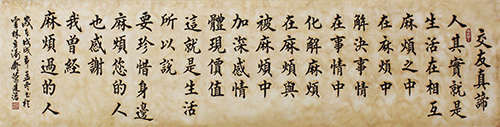 交友真諦
人其實就是
生活在相互
麻煩之中
解決事情
在事情中
化解麻煩
在麻煩與
被麻煩中
加深感情
體現價值
這就是生活
所以說
要珍惜身邊
麻煩您的人
也感謝
我曾經
麻煩過的人